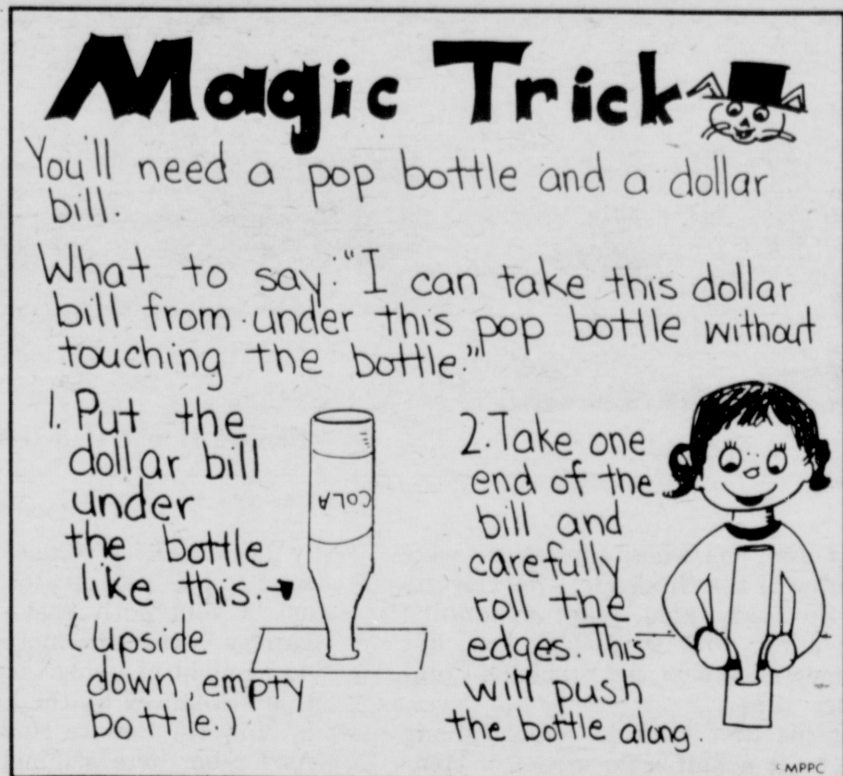 Magic Trick
You'll need a pop bottle and a dollar
bill.
What to say: "I can take this dollar
bill from under this pop bottle without
touching the bottle."
1. Put the
dollar bill
under
the bottle
like this. →
(upside
down, empty
bottle.)
COLA
2. Take one
end of the
bill and
carefully
roll the
edges. This
will push
the bottle along
MPPC